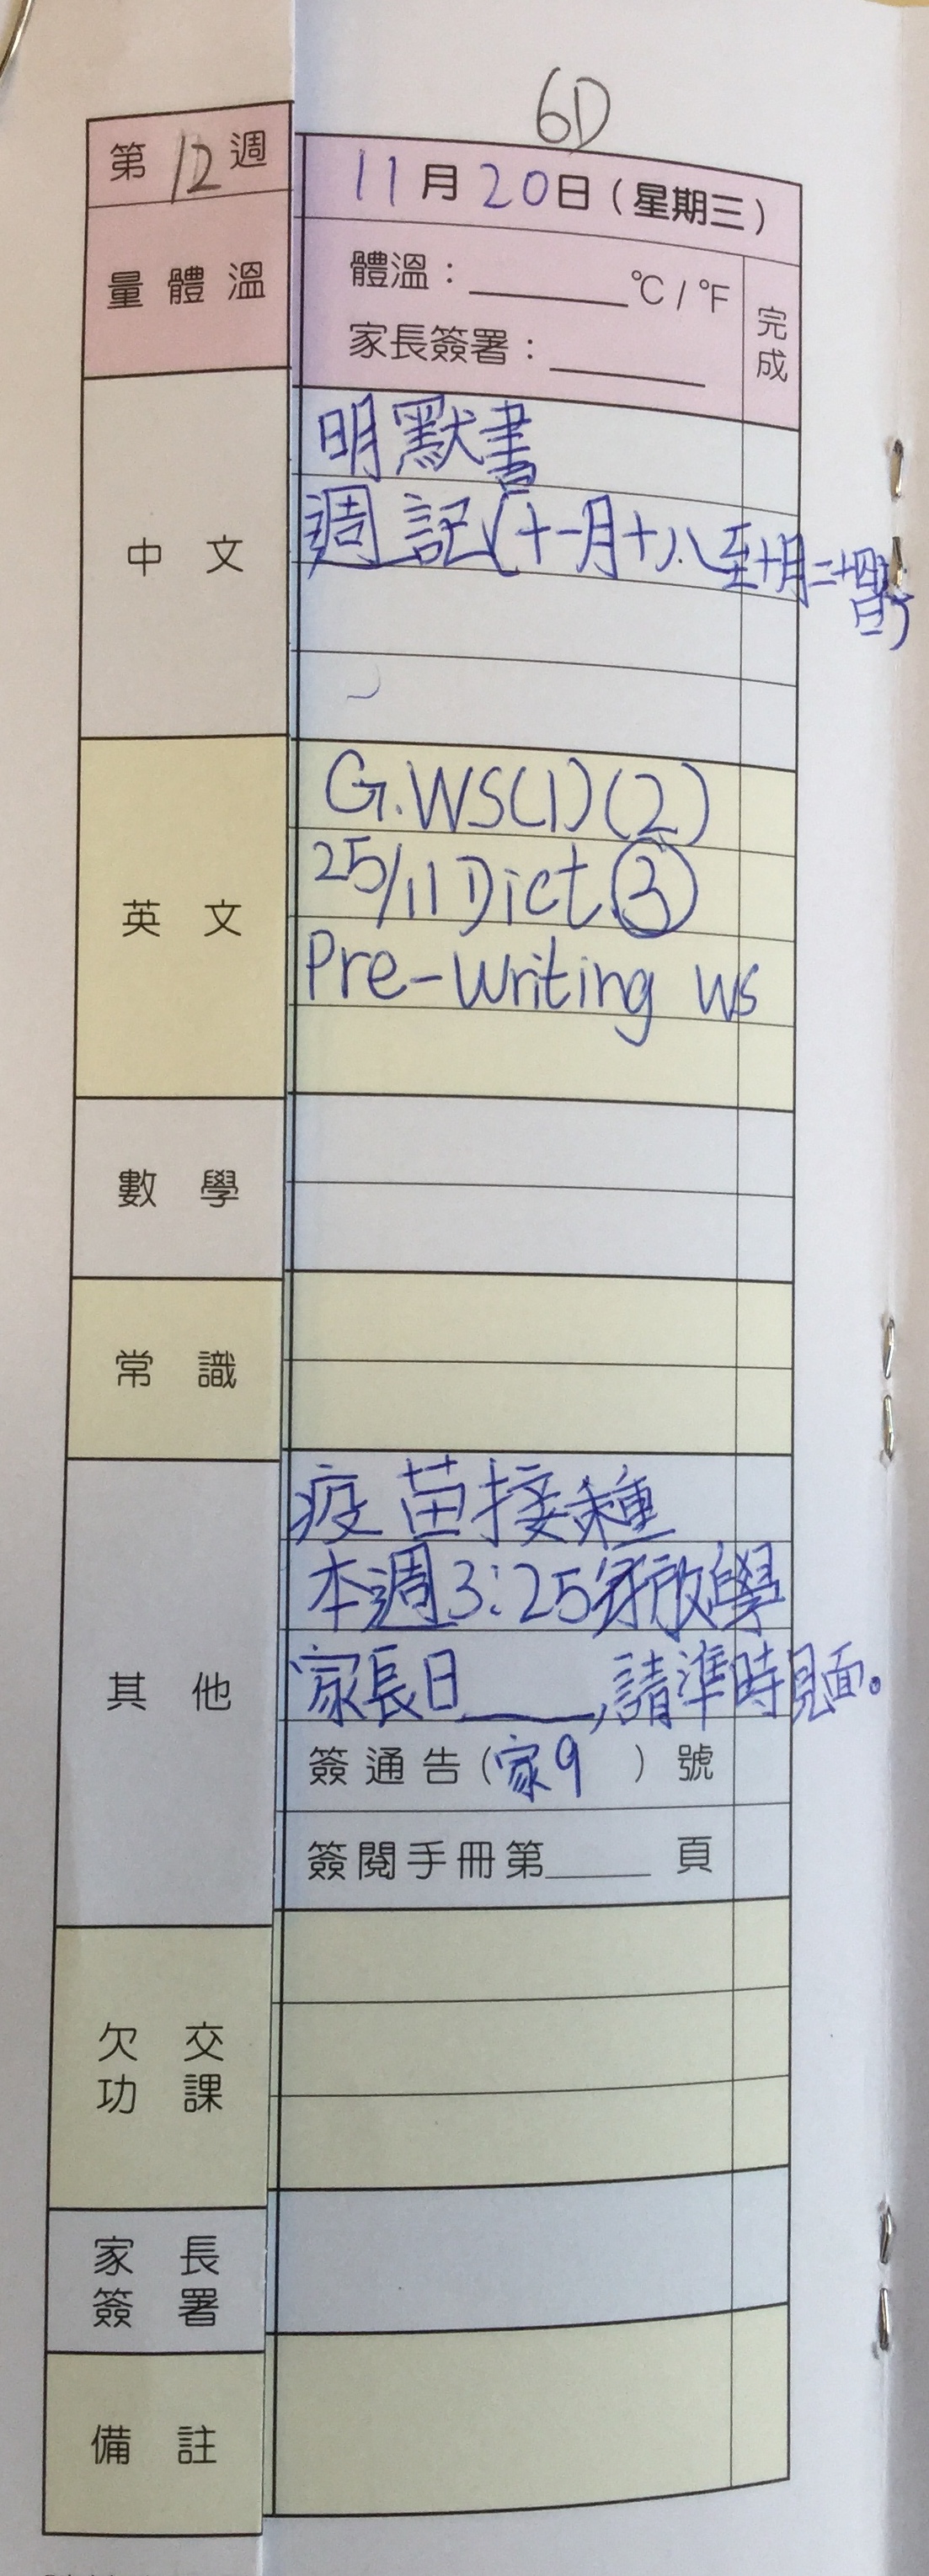 6D
第12週
11月20日(星期三)
量體溫
體溫：______°C / °F
家長簽署：______
完成
中文
明默書
週記(十一月十八至十月二十四日)
英文
G.WS(1)(2)
25/11 Dict.③
Pre-Writing WS
數學
常識
其他
疫苗接種
本週3:25分放學
家長日______,請準時見面。
簽通告(家9)號
簽閱手冊第______頁
欠交功課
家長簽署
備註